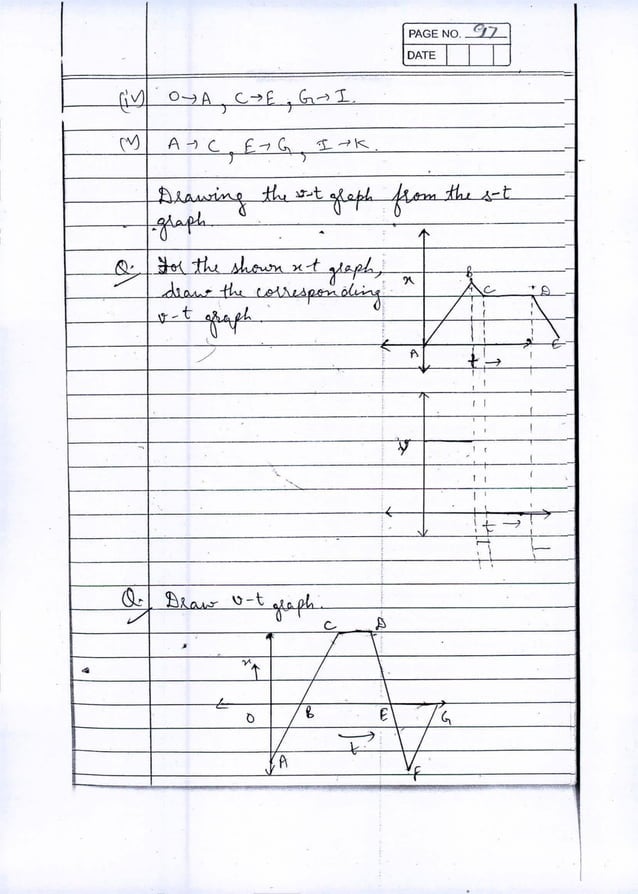 PAGE NO. 97
DATE
(iv) O→A, C→E, G→I.
(v) A→C, E→G, I→K.
Drawing the v-t graph from the s-t
graph.
Q. For the shown x-t graph,
draw the corresponding
v-t graph.
x
B
C
D
A
E
t →
v
t →
Q. Draw v-t graph.
C
D
x↑
O
B
E
G
t →
A
F